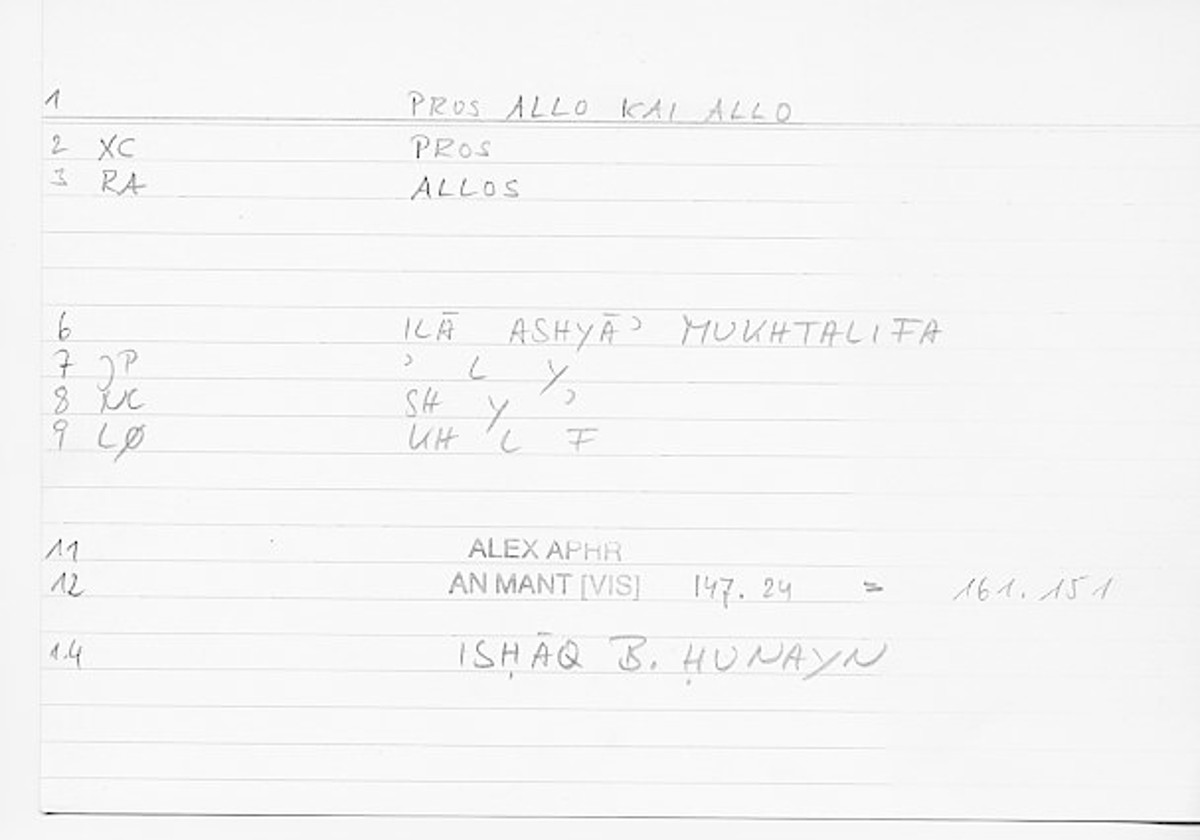 1 PROS ALLO KAI ALLO
2 XC PROS
3 RA ALLOS
6 ILĀ ASHYĀʾ MUKHTALIFA
7 JP ʾ L Y
8 NC SH Y ʾ
9 LØ KH L F
11 ALEX APHR
12 AN MANT [VIS] 147. 24 = 161. 151
14 ISḤĀQ B. ḤUNAYN